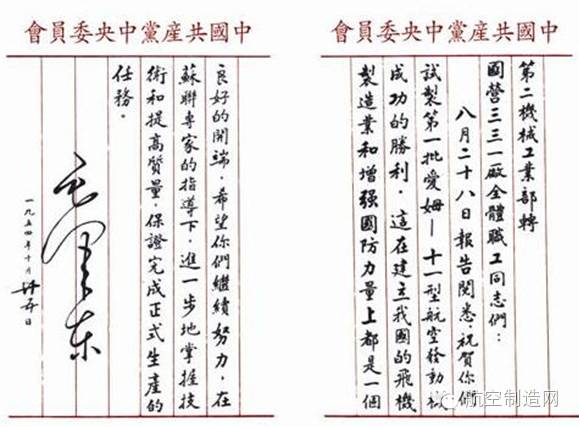 中國共産黨中央委員會
第二機械工業部轉
國營三三一廠全體職工同志們：
八月二十八日報告閱悉。祝賀你們
試製第一批愛姆—十一型航空發動機
成功的勝利。這在建立我國的飛機
製造業和增强國防力量上都是一個
中國共産黨中央委員會
良好的開端。希望你們繼續努力，在
蘇聯專家的指導下，進一步地掌握技
術和提高質量，保證完成正式生產的
任務。
毛澤東
一九五四年十月廿五日
航空制造网